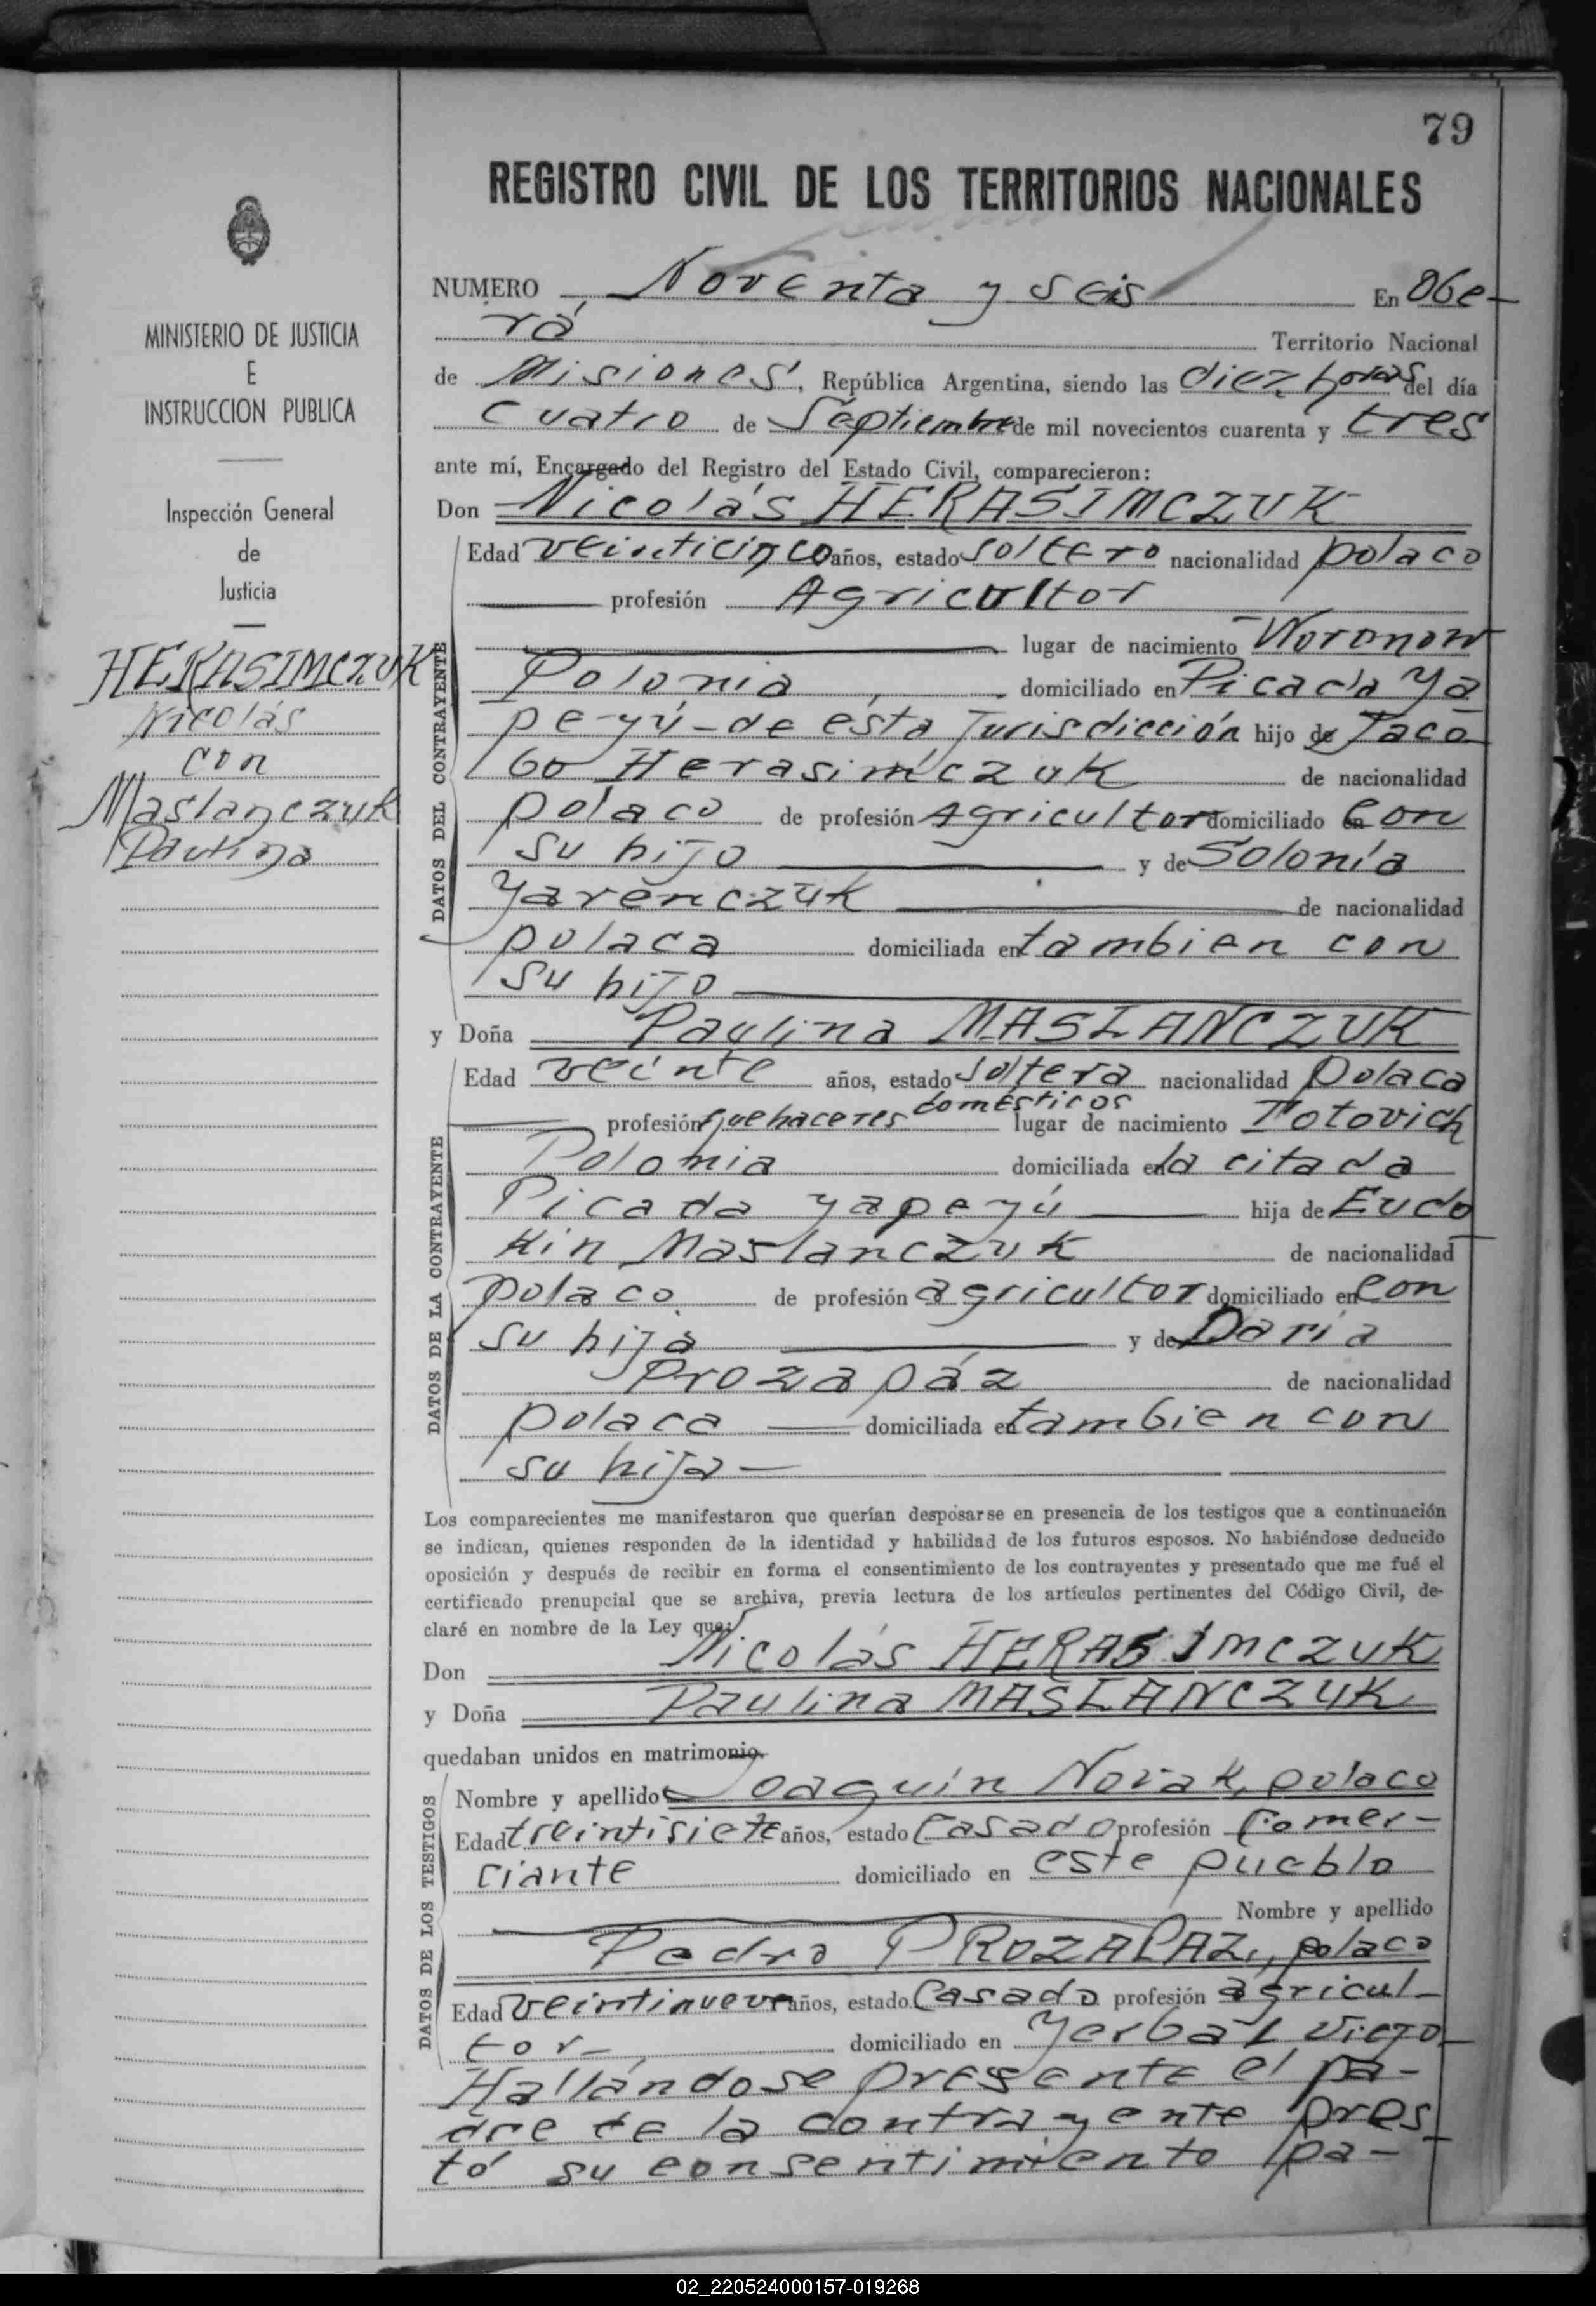 79
REGISTRO CIVIL DE LOS TERRITORIOS NACIONALES
MINISTERIO DE JUSTICIA
E
INSTRUCCION PUBLICA
Inspección General
de
Justicia
HERASIMCZUK
Nicolás
con
Maslanczuk
Paulina
NUMERO Noventa y seis En Obe-
rá Territorio Nacional
de Misiones, República Argentina, siendo las diez horas del día
cuatro de Septiembre de mil novecientos cuarenta y tres
ante mí, Encargado del Registro del Estado Civil, comparecieron:
Don Nicolás HERASIMCZUK
DATOS DEL CONTRAYENTE
Edad veinticinco años, estado soltero nacionalidad polaco
profesión Agricultor
lugar de nacimiento Woronow
Polonia, domiciliado en Picada Ya
peyú-de ésta Jurisdicción hijo de Jaco
bo Herasimczuk de nacionalidad
polaco de profesión Agricultor domiciliado en con
su hijo y de Solonía
Yarenczuk de nacionalidad
polaca domiciliada en tambien con
su hijo
y Doña Paulina MASLANCZUK
DATOS DE LA CONTRAYENTE
Edad veinte años, estado soltera nacionalidad polaca
profesión quehaceres domésticos lugar de nacimiento Totovich
Polonia domiciliada en la citada
Picada yapeyú hija de Eudo
kin Maslanczuk de nacionalidad
polaco de profesión agricultor domiciliado en con
su hija y de Daría
Prozapáz de nacionalidad
polaca domiciliada en tambien con
su hija-
Los comparecientes me manifestaron que querían desposarse en presencia de los testigos que a continuación
se indican, quienes responden de la identidad y habilidad de los futuros esposos. No habiéndose deducido
oposición y después de recibir en forma el consentimiento de los contrayentes y presentado que me fué el
certificado prenupcial que se archiva, previa lectura de los artículos pertinentes del Código Civil, de-
claré en nombre de la Ley que:
Don Nicolás HERASIMCZUK
y Doña Paulina MASLANCZUK
quedaban unidos en matrimonio.
DATOS DE LOS TESTIGOS
Nombre y apellido Joaquín Novak, polaco
Edad treintisiete años, estado Casado profesión Comer-
ciante domiciliado en este pueblo
Nombre y apellido
Pedro PROZAPAZ, polaco
Edad veintinueve años, estado Casado profesión agricul-
tor- domiciliado en Yerbal Viejo-
Hallándose presente el pa-
dre de la contrayente pres
tó su consentimiento pa-
02_220524000157-019268